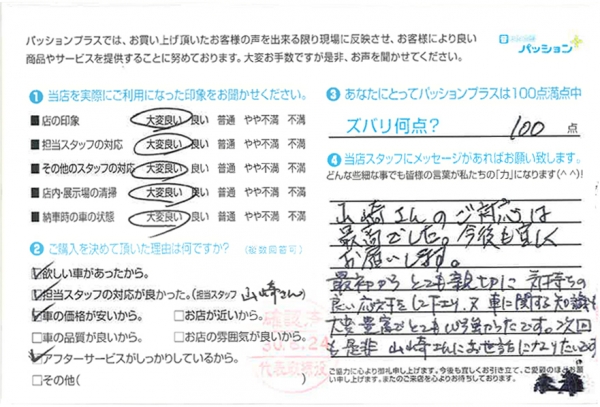 パッションプラスでは、お買い上げ頂いたお客様の声を出来る限り現場に反映させ、お客様により良い
商品やサービスを提供することに努めております。大変お手数ですが是非、お声を聞かせてください。
パッション
1 当店を実際にご利用になった印象をお聞かせください。
■ 店の印象 大変良い 良い 普通 やや不満 不満
■ 担当スタッフの対応 大変良い 良い 普通 やや不満 不満
■ その他のスタッフの対応 大変良い 良い 普通 やや不満 不満
■ 店内・展示場の清掃 大変良い 良い 普通 やや不満 不満
■ 納車時の車の状態 大変良い 良い 普通 やや不満 不満
2 ご購入を決めて頂いた理由は何ですか? (複数回答可)
☑欲しい車があったから。
☑担当スタッフの対応が良かった。(担当スタッフ 山崎さん)
☑車の価格が安いから。 □お店が近いから。
□車の品質が良いから。 □お店の雰囲気が良いから。
☑アフターサービスがしっかりしているから。
□その他( )
確認済
30.6.24
代表取締役
3 あなたにとってパッションプラスは100点満点中
ズバリ何点? 100 点
4 当店スタッフにメッセージがあればお願い致します。
どんな些細な事でも皆様の言葉が私たちの「力」になります(^^)!
山崎さんのご対応は
最高でした。今後も宜しく
お願いします。
最初からとても親切に 気持ちの
良い応対をして下さり、又 車に関する知識も
大変豊富でとても心強かったです。次回
も是非 山崎さんにお世話になりたいです
ご協力に心より御礼申し上げます。今後も宜しくお引き立て、ご愛顧のほどお願
い申し上げます。またのご来店を心よりお待ちしております。